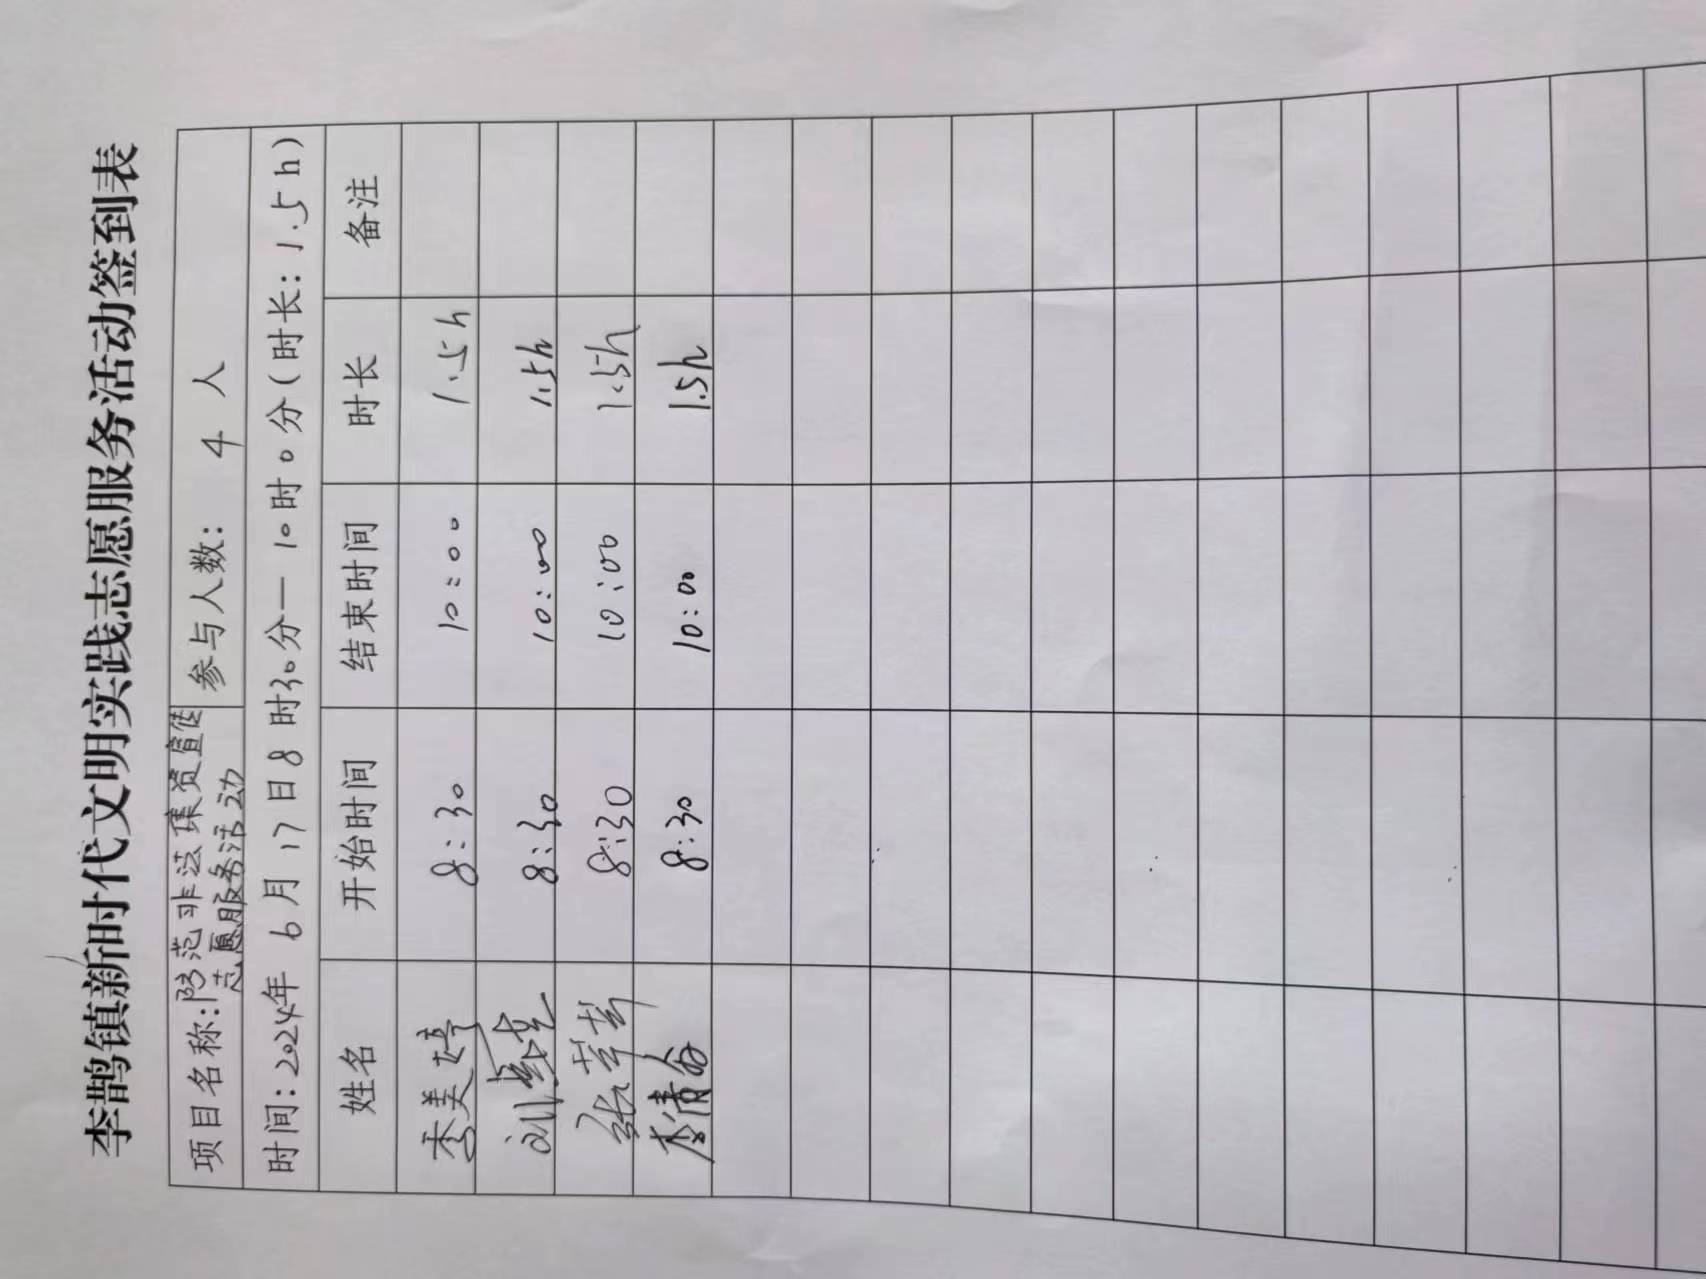 李鹊镇新时代文明实践志愿服务活动签到表
项目名称:防范非法集资宣传志愿服务活动 参与人数: 4 人
时间:2024年 6月 17日8时30分—10时0分(时长:1.5h)
姓名 开始时间 结束时间 时长 备注
李美婷 8:30 10:00 1.5h
8:30 10:00 1.5h
张苹苹 8:30 10:00 1.5h
李倩合 8:30 10:00 1.5h